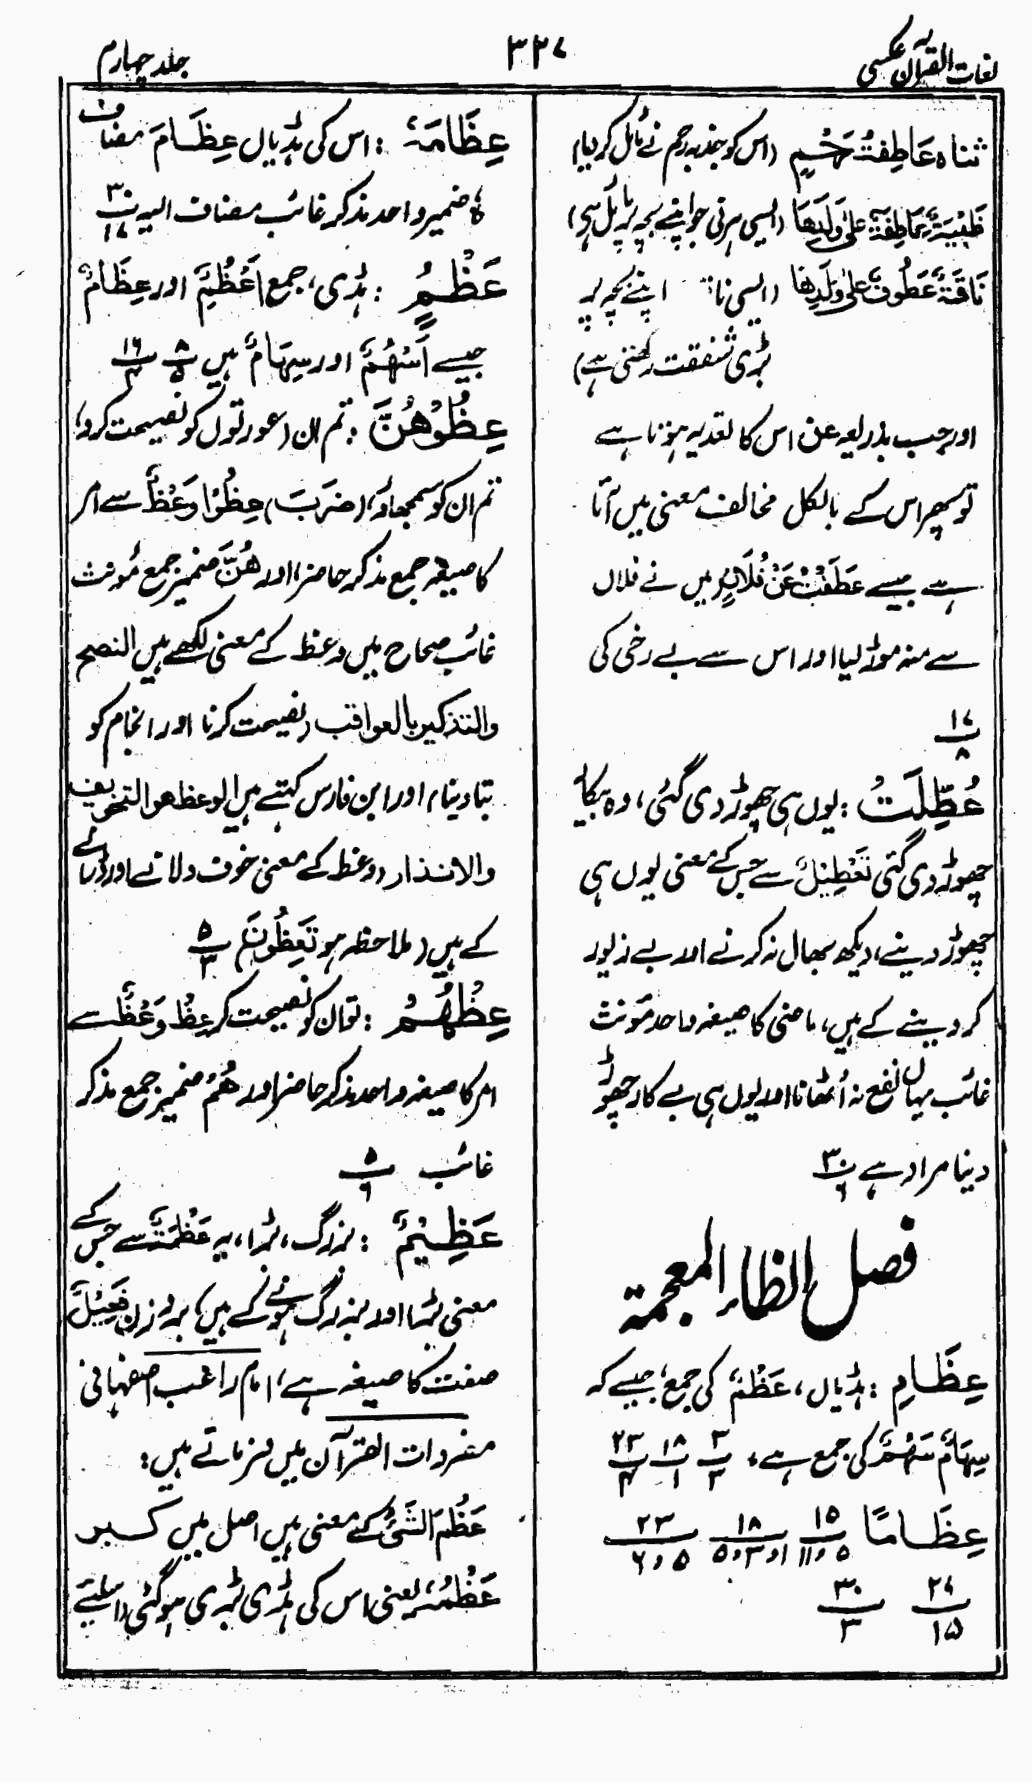 لغات القرآن عکسی
۳۲۷
جلد چہارم
ثناہ عَاطِفَۃُ رَحِیْمٍ (اس کو جذبہ رحم نے مائل کر دیا)
ظَبْیَۃٌ عَاطِفَۃٌ عَلٰی وَلَدِھَا (ایسی ہرنی جو اپنے بچہ پر مائل ہو)
نَاقَۃٌ عَطُوْفٌ عَلٰی وَلَدِھَا (ایسی ناقہ اپنے بچہ پر
بڑی شفقت رکھتی ہے)
اور جب بذریعہ عن اس کا تعدیہ ہوتا ہے
تو پھر اس کے بالکل مخالف معنی میں آتا
ہے جیسے عَطَفْتُ عَنْ فُلَانٍ میں نے فلاں
سے منہ موڑ لیا اور اس سے بے رخی کی
۱۷
۸
عُطِّلَتْ : یوں ہی چھوڑ دی گئی، وہ بیکار
چھوڑ دی گئی تَعْطِیْلٌ سے جس کے معنی یوں ہی
چھوڑ دینے، دیکھ بھال نہ کرنے اور بے زیور
کر دینے کے ہیں، ماضی کا صیغہ واحد مؤنث
غائب یہاں نفع نہ اُٹھانا اور یوں ہی بے کار چھوڑ
دینا مراد ہے ۳۰
۶
فصل الظاء المعجمۃ
عِظَامِ : ہڈیاں، عَظْمٌ کی جمع، جیسے کہ
سِھَامٌ سَھْمٌ کی جمع ہے، ۳ ۱۸ ۲۳
۳ ۱ ۴
عِظَامًا ۱۵ ۱۸ ۲۳
۵ و ۱۱ ۱ و ۳ و ۵ ۵ و ۶
۲۶ ۳۰
۱۵ ۳
عِظَامَہٗ : اس کی ہڈیاں عِظَامَ مضاف
ہٗ ضمیر واحد مذکر غائب مضاف الیہ ۳۰
۱۷
عَظْمٍ : ہڈی، جمع اَعْظُمٌ اور عِظَامٌ
جیسے اَسْھُمٌ اور سِھَامٌ ہیں ۸ ۱۶
۵ ۴
عِظُوْھُنَّ : تم ان (عورتوں کو نصیحت کرو)
تم ان کو سمجھاؤ، (ضَرَبَ) عِظُوْا وَعْظٌ سے امر
کا صیغہ جمع مذکر حاضر، اور ھُنَّ ضمیر جمع مؤنث
غائب صحاح میں وعظ کے معنی لکھے ہیں النصح
والتذکیر بالعواقب (نصیحت کرنا اور انجام کو
بتا دینا) اور ابن فارس کہتے ہیں الوعظ ھو التخویف
والانذار (وعظ کے معنی خوف دلانے اور ڈرانے
کے ہیں) ملاحظہ ہو تَعِظُوْنَ ۵
۳
عِظْھُمْ : تو ان کو نصیحت کر عِظْ وَعْظٌ سے
امر کا صیغہ واحد مذکر حاضر اور ھُمْ ضمیر جمع مذکر
غائب ۵
۶
عَظِیْمٌ : بزرگ، بڑا، یہ عَظْمَۃٌ سے جس کے
معنی بڑا اور بزرگ ہونے کے ہیں، بروزن فَعِیْلٌ
صفت کا صیغہ ہے، امام راغب اصفہانی
مفردات القرآن میں فرماتے ہیں:
عَظُمَ الشَّیْئُ کے معنی ہیں اصل میں کبر
عَظْمُہٗ یعنی اس کی ہڈی بڑی ہو گئی، اس لئے